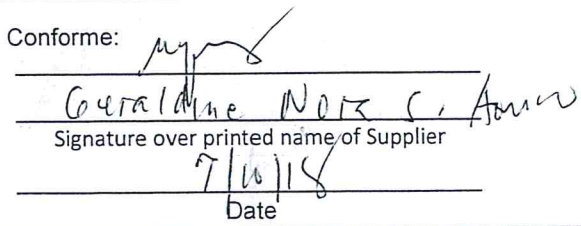 Conforme:
Geraldine Nora S.
Signature over printed name of Supplier
7/10/18
Date